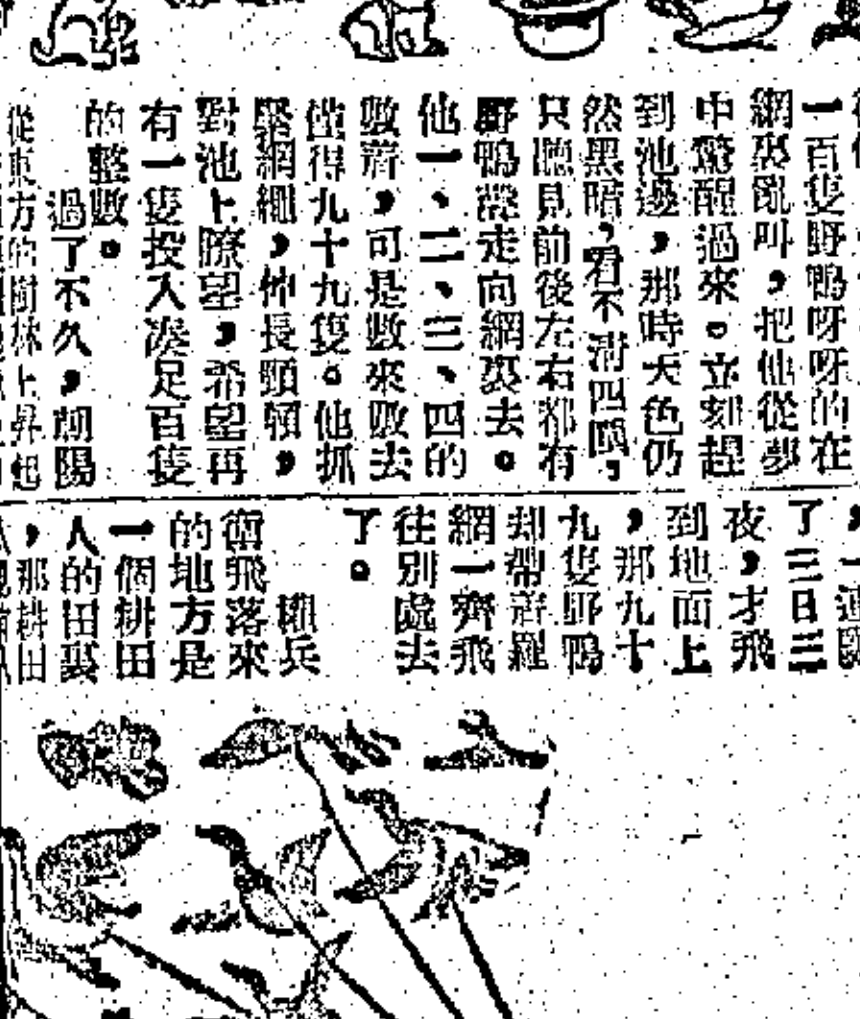 一百隻野鴨呀呀的在
網裏亂叫，把他從夢
中驚醒過來。立刻趕
到池邊，那時天色仍
然黑暗，看不清四周，
只聽見前後左右都有
野鴨聲走向網裏去。
他一、二、三、四的
數着，可是數來數去
僅得九十九隻。他抓
緊網繩，伸長頸項，
對池上瞭望，希望再
有一隻投入湊足百隻
的整數。
過了不久，朝陽
從東方的樹林上昇起
了三日三
夜，才飛
到地面上
，那九十
九隻野鴨
却帶着羅
網一齊飛
往別處去
了。
糧兵
衛飛落來
的地方是
一個耕田
人的田裏
，那耕田